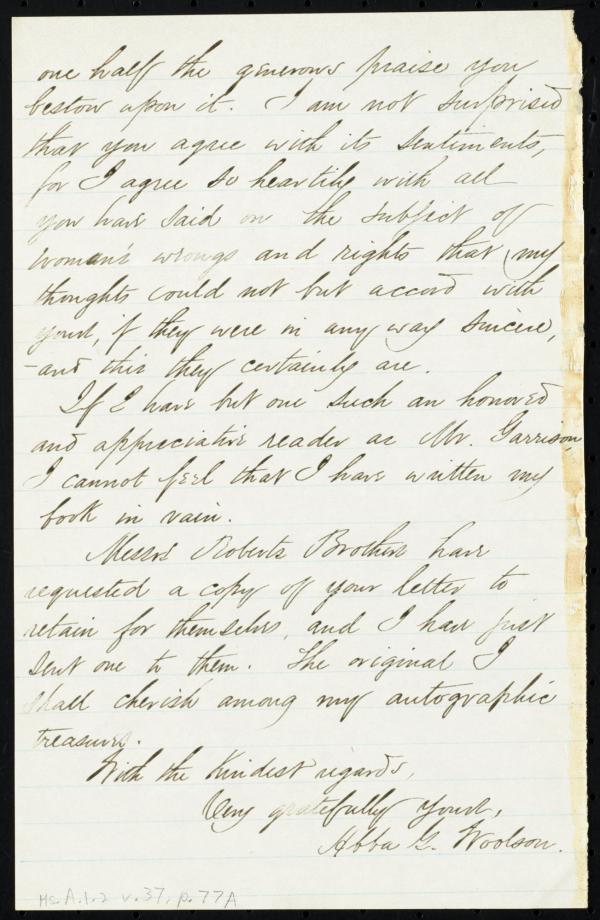 one half the generous praise you
bestow upon it. I am not surprised
that you agree with its sentiments,
for I agree so heartily with all
you have said on the subject of
woman's wrongs and rights that my
thoughts could not but accord with
yours, if they were in any way sincere,
- and this they certainly are.
If I have but one such an honored
and appreciative reader as Mr. Garrison,
I cannot feel that I have written my
book in vain.
Messrs Roberts Brothers have
requested a copy of your letter to
retain for themselves, and I have just
sent one to them. The original I
shall cherish among my autographic
treasures.
With the kindest regards,
Very gratefully yours,
Abba G. Woolson.
Ms. A.1.2 v.37, p.77A